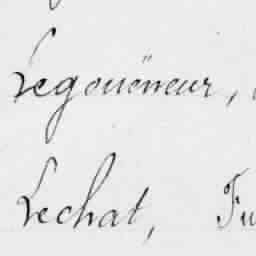 Legouëneur,
Lechat, Fu